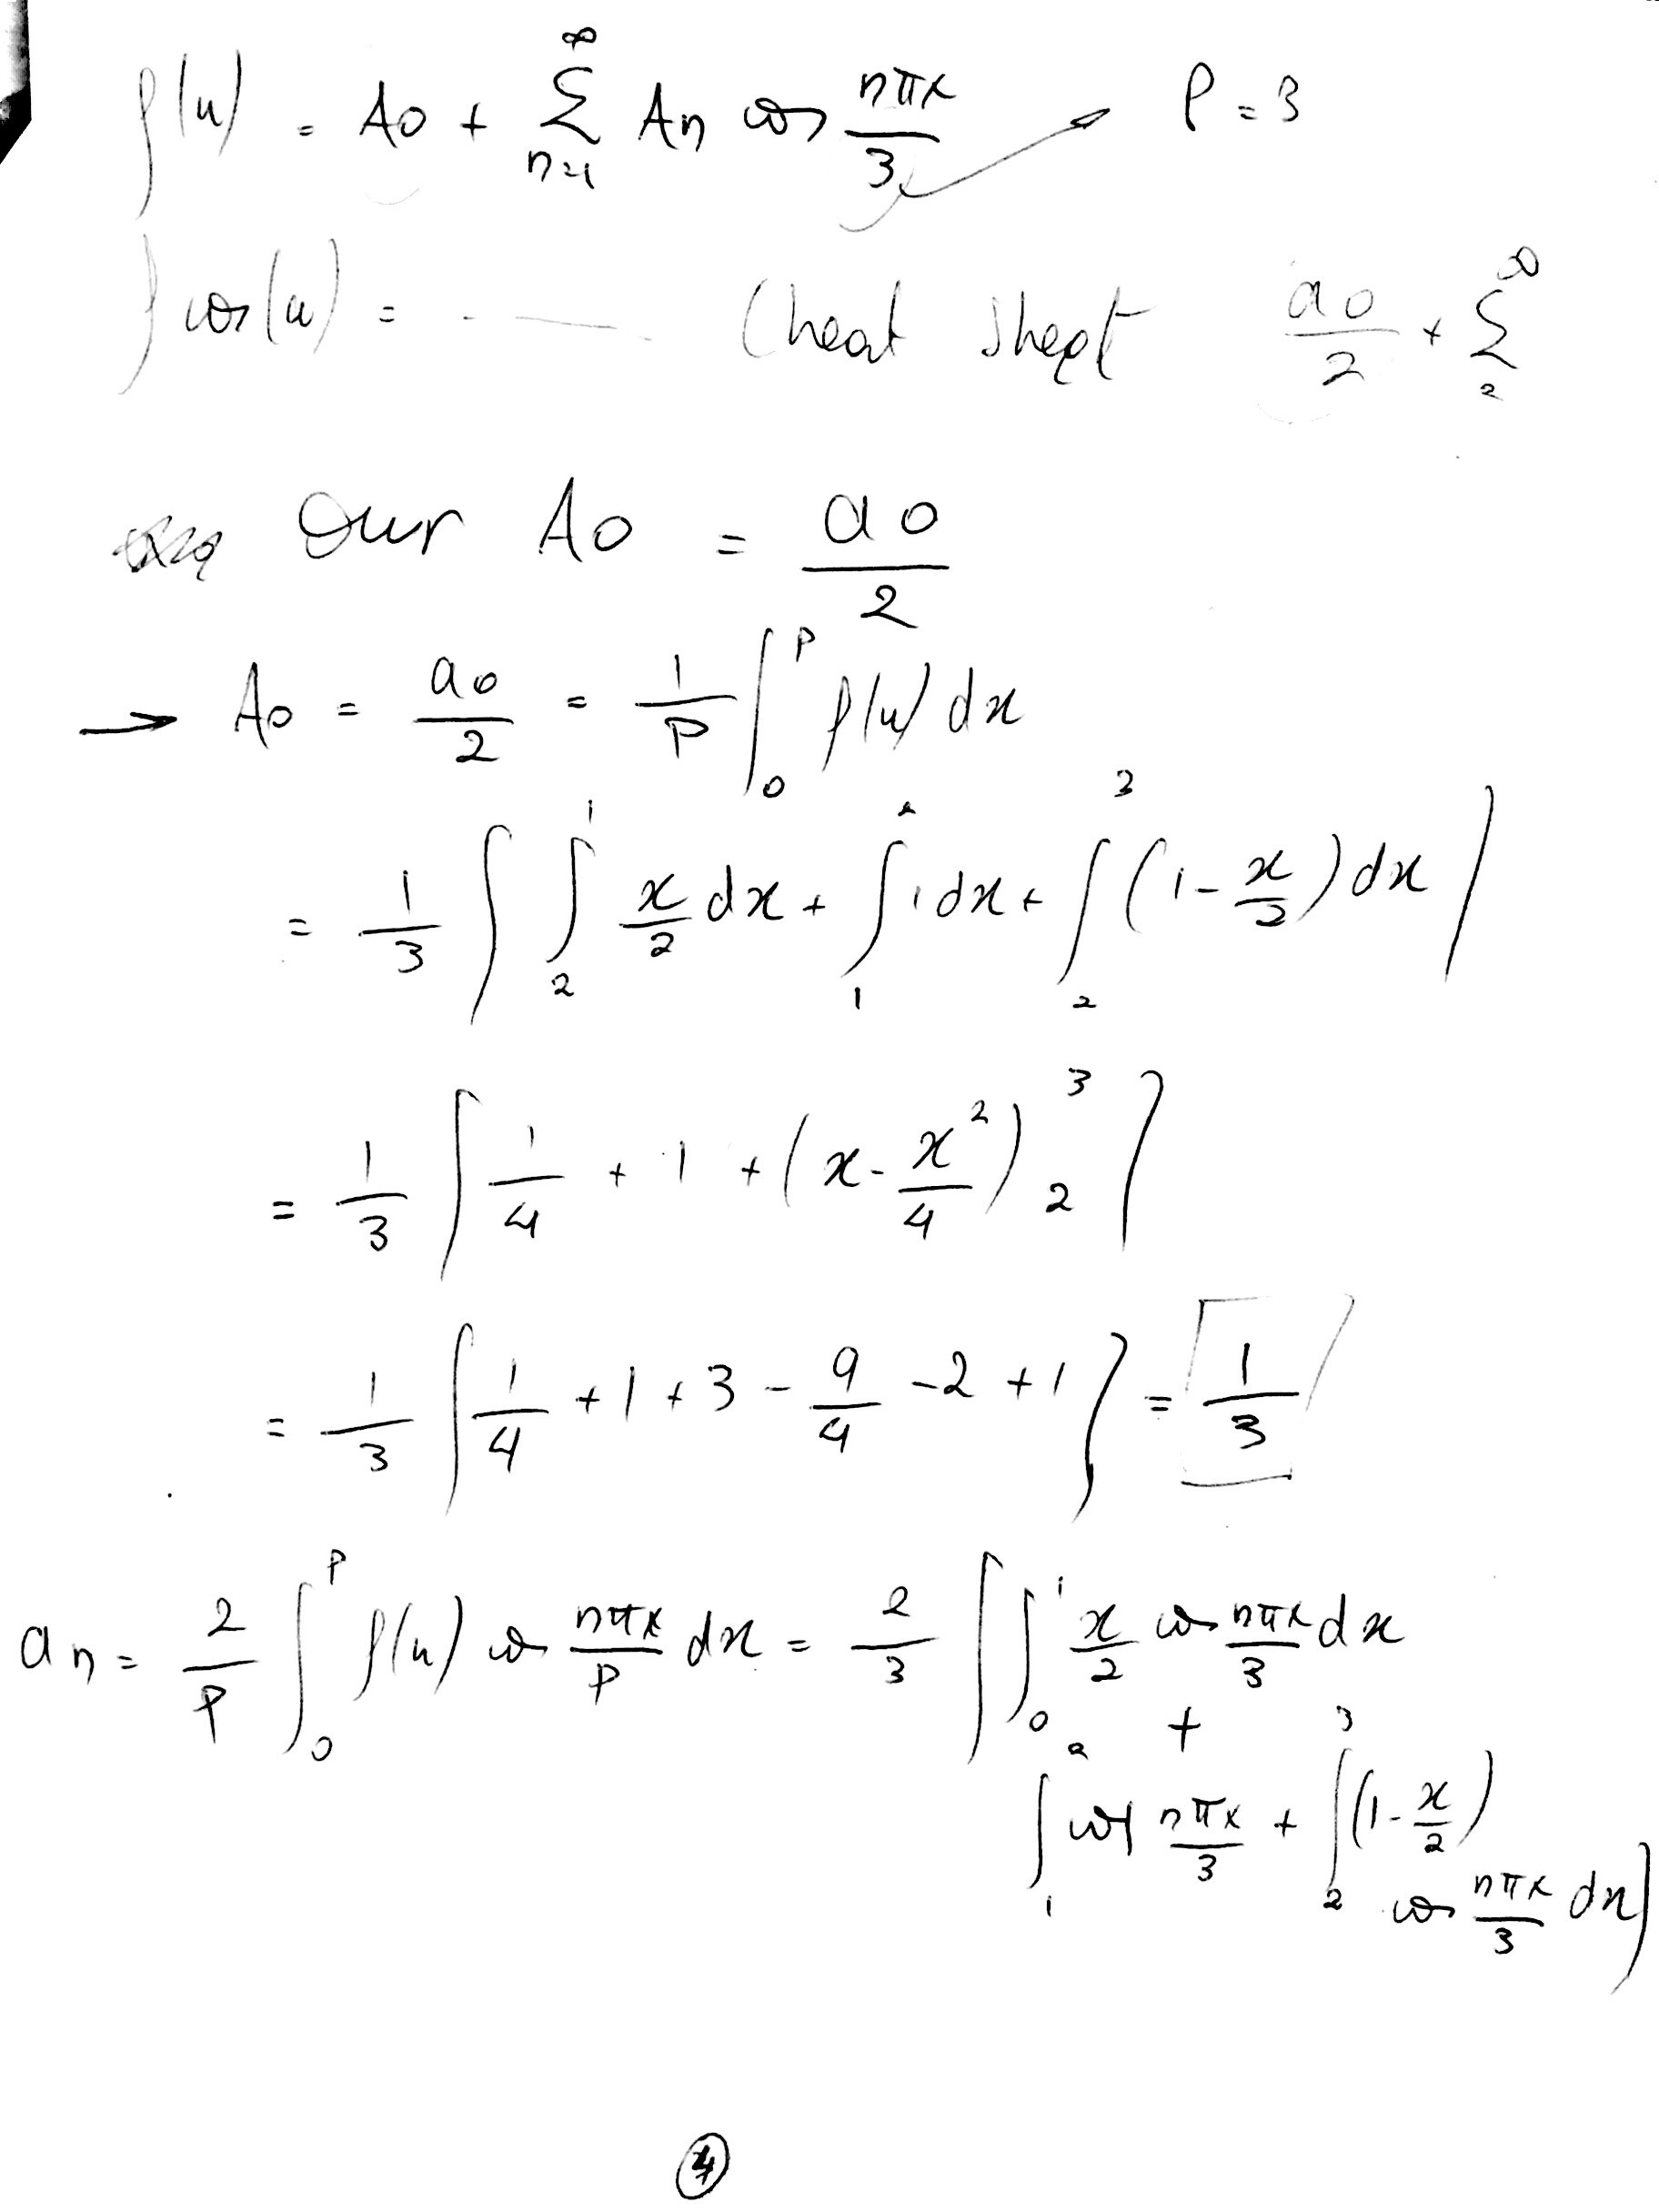 f(x) = A0 + ∞ Σ n=1 An cos nπx/3 → P = 3
f cos(x) = . — Cheat sheet a0/2 + ∞ Σ 2
Our A0 = a0/2
→ A0 = a0/2 = 1/P ∫_0^P f(x) dx
= 1/3 [ ∫_2^1 x/2 dx + ∫_1^2 1 dx + ∫_2^3 (1 - x/2) dx ]
= 1/3 [ 1/4 + 1 + (x - x²/4)_2^3 ]
= 1/3 [ 1/4 + 1 + 3 - 9/4 - 2 + 1 ] = 1/3
an = 2/P ∫_0^P f(x) cos nπx/P dx = 2/3 [ ∫_0^1 x/2 cos nπx/3 dx
+
∫_1^2 cos nπx/3 + ∫_2^3 (1 - x/2)
cos nπx/3 dx ]
4